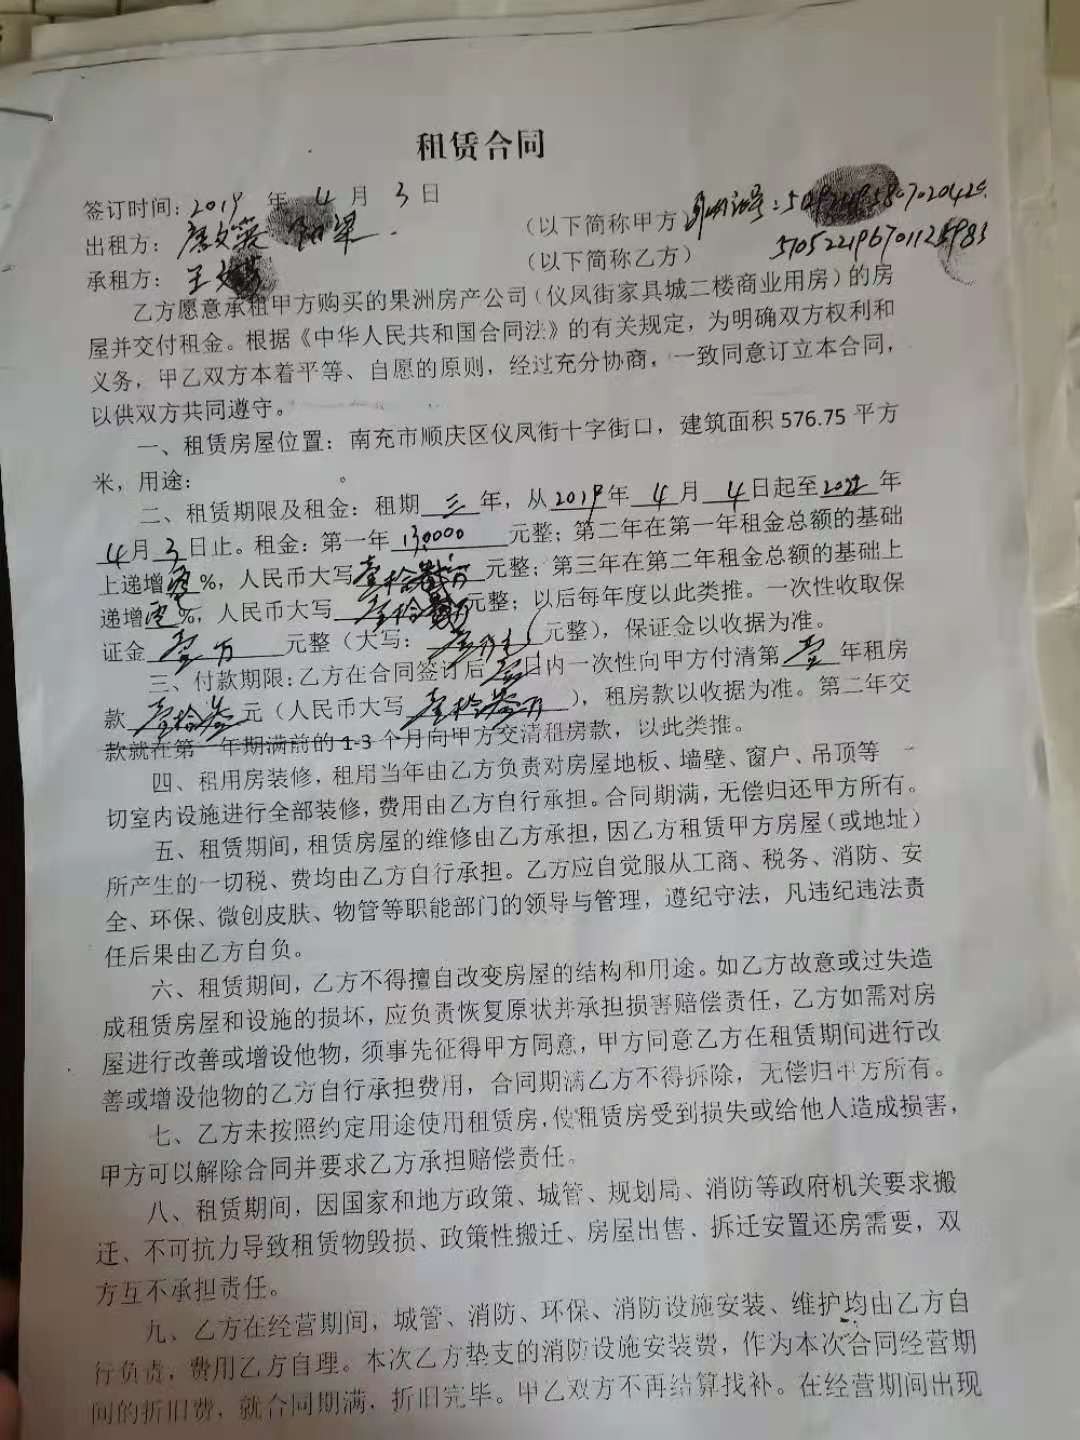 租赁合同
签订时间：2019 年 4 月 3 日
出租方： （以下简称甲方）
承租方：王 （以下简称乙方）
乙方愿意承租甲方购买的果洲房产公司（仪凤街家具城二楼商业用房）的房
屋并交付租金。根据《中华人民共和国合同法》的有关规定，为明确双方权利和
义务，甲乙双方本着平等、自愿的原则，经过充分协商，一致同意订立本合同，
以供双方共同遵守。
一、租赁房屋位置：南充市顺庆区仪凤街十字街口，建筑面积 576.75 平方
米，用途：
二、租赁期限及租金：租期 三 年，从 2019 年 4 月 4 日起至 2022 年
4 月 3 日止。租金：第一年 130000 元整；第二年在第一年租金总额的基础
上递增 零 %，人民币大写 壹拾叁万 元整；第三年在第二年租金总额的基础上
递增 零 %，人民币大写 壹拾叁万 元整；以后每年度以此类推。一次性收取保
证金 壹万 元整（大写： 元整），保证金以收据为准。
三、付款期限：乙方在合同签订后 日内一次性向甲方付清第 壹 年租房
款 壹拾叁 元（人民币大写 壹拾叁万 ），租房款以收据为准。第二年交
款就在第一年期满前的 1-3 个月向甲方交清租房款，以此类推。
四、租用房装修，租用当年由乙方负责对房屋地板、墙壁、窗户、吊顶等一
切室内设施进行全部装修，费用由乙方自行承担。合同期满，无偿归还甲方所有。
五、租赁期间，租赁房屋的维修由乙方承担，因乙方租赁甲方房屋（或地址）
所产生的一切税、费均由乙方自行承担。乙方应自觉服从工商、税务、消防、安
全、环保、微创皮肤、物管等职能部门的领导与管理，遵纪守法，凡违纪违法责
任后果由乙方自负。
六、租赁期间，乙方不得擅自改变房屋的结构和用途。如乙方故意或过失造
成租赁房屋和设施的损坏，应负责恢复原状并承担损害赔偿责任，乙方如需对房
屋进行改善或增设他物，须事先征得甲方同意，甲方同意乙方在租赁期间进行改
善或增设他物的乙方自行承担费用，合同期满乙方不得拆除，无偿归甲方所有。
七、乙方未按照约定用途使用租赁房，使租赁房受到损失或给他人造成损害，
甲方可以解除合同并要求乙方承担赔偿责任。
八、租赁期间，因国家和地方政策、城管、规划局、消防等政府机关要求搬
迁、不可抗力导致租赁物毁损、政策性搬迁、房屋出售、拆迁安置还房需要，双
方互不承担责任。
九、乙方在经营期间，城管、消防、环保、消防设施安装、维护均由乙方自
行负责，费用乙方自理。本次乙方垫支的消防设施安装费，作为本次合同经营期
间的折旧费，就合同期满，折旧完毕。甲乙双方不再结算找补。在经营期间出现